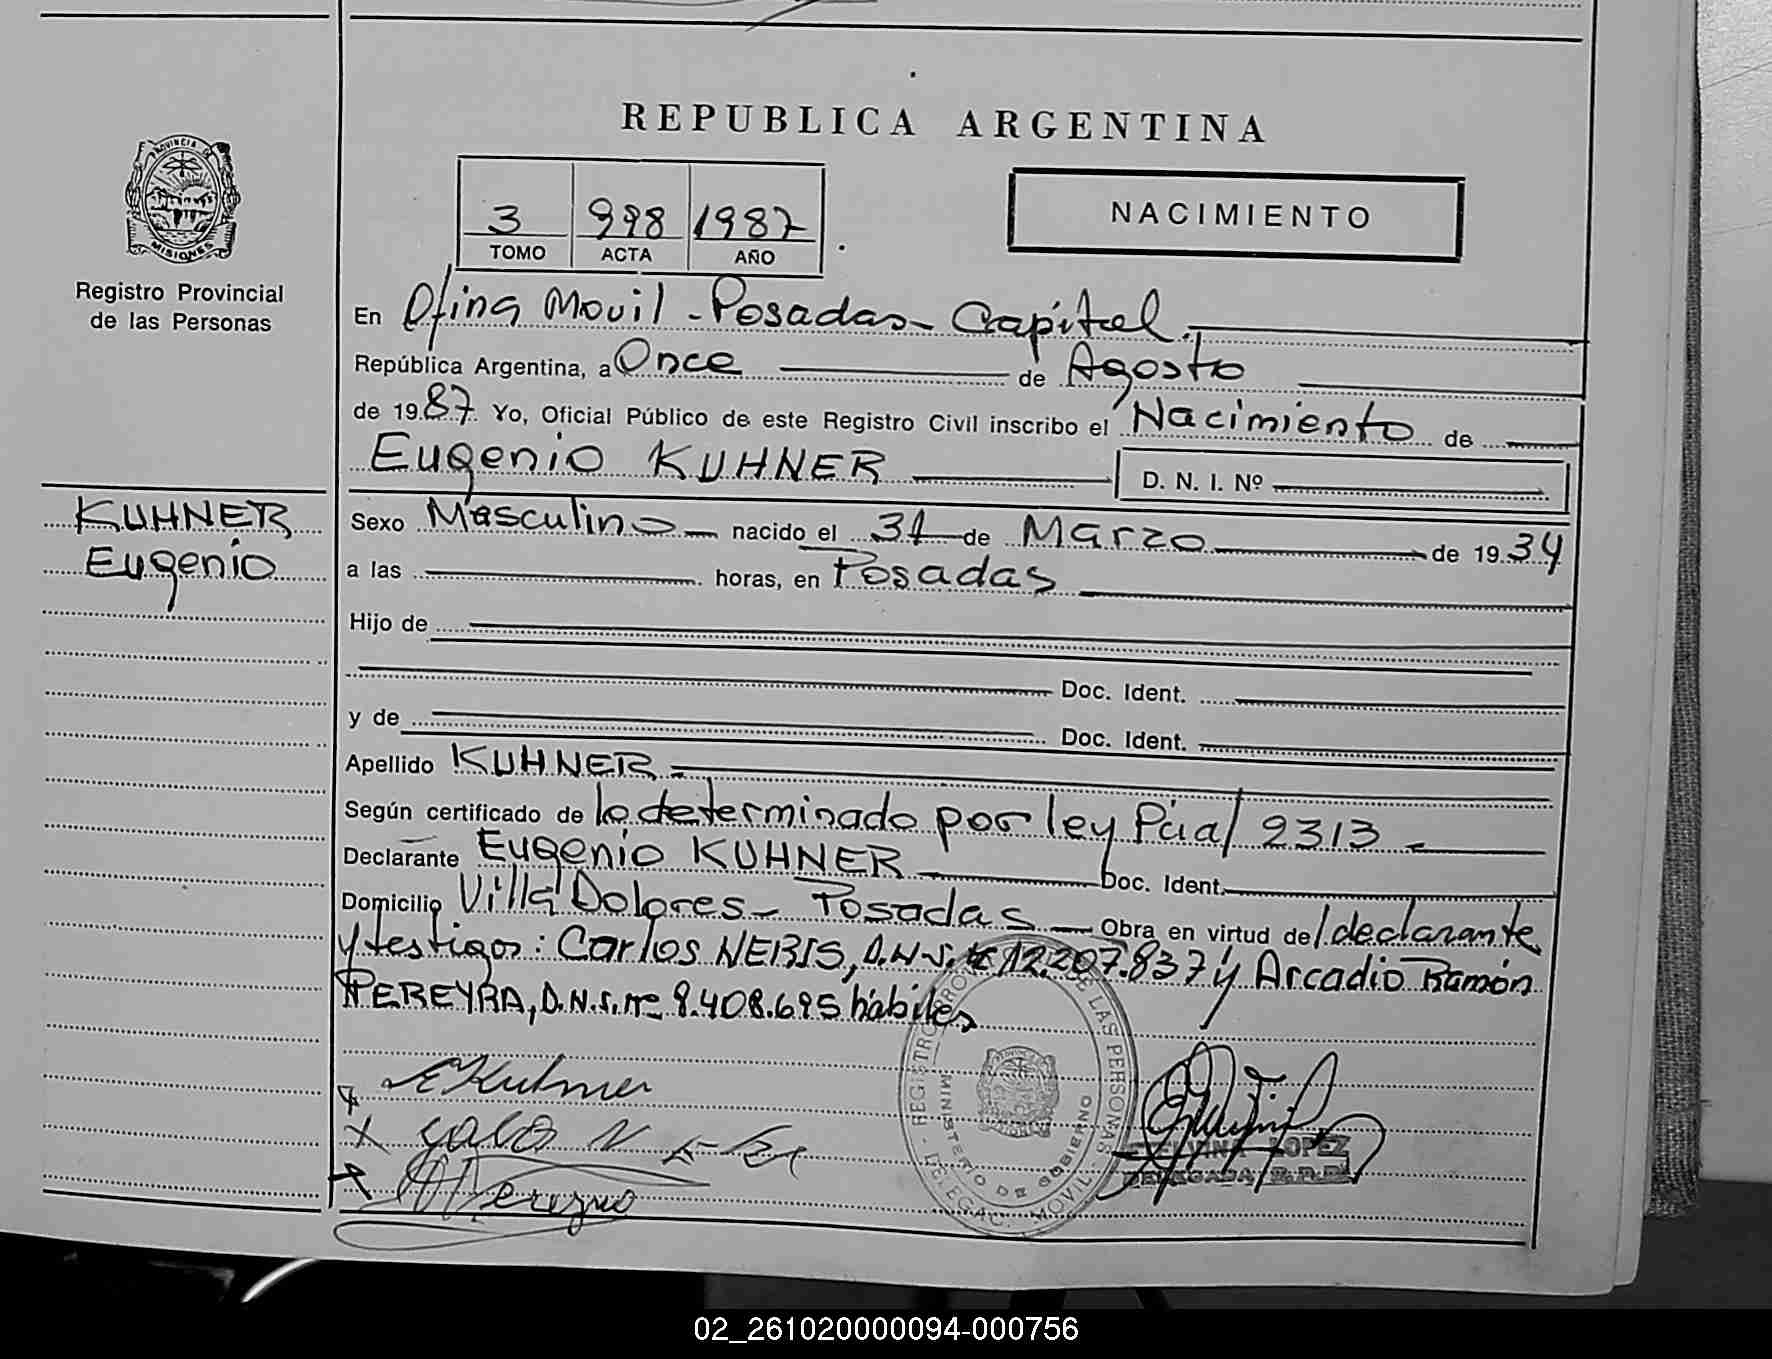 REPUBLICA ARGENTINA
PROVINCIA DE
MISIONES
Registro Provincial
de las Personas
3 998 1987
TOMO ACTA AÑO
NACIMIENTO
En Ofina Movil - Posadas - Capital.
República Argentina, a Once de Agosto
de 1987. Yo, Oficial Público de este Registro Civil inscribo el Nacimiento de
Eugenio KUHNER D. N. I. Nº
KUHNER
Eugenio
Sexo Masculino nacido el 31 de Marzo de 1934
a las horas, en Posadas
Hijo de
Doc. Ident.
y de Doc. Ident.
Apellido KUHNER
Según certificado de lo determinado por ley Pcial 2313
Declarante Eugenio KUHNER Doc. Ident.
Domicilio Villa Dolores - Posadas Obra en virtud de/ declarante
y testigos: Carlos NERIS, D.N.I. 12.207.837 y Arcadio Ramón
PEREYRA, D.N.I. nº 8.408.695 hábiles
EKuhner
REGISTRO PROV. DE LAS PERSONAS
MINISTERIO DE GOBIERNO
DELEGAC. MOVIL
LOPEZ
DELEGADA R.P.P.
02_261020000094-000756